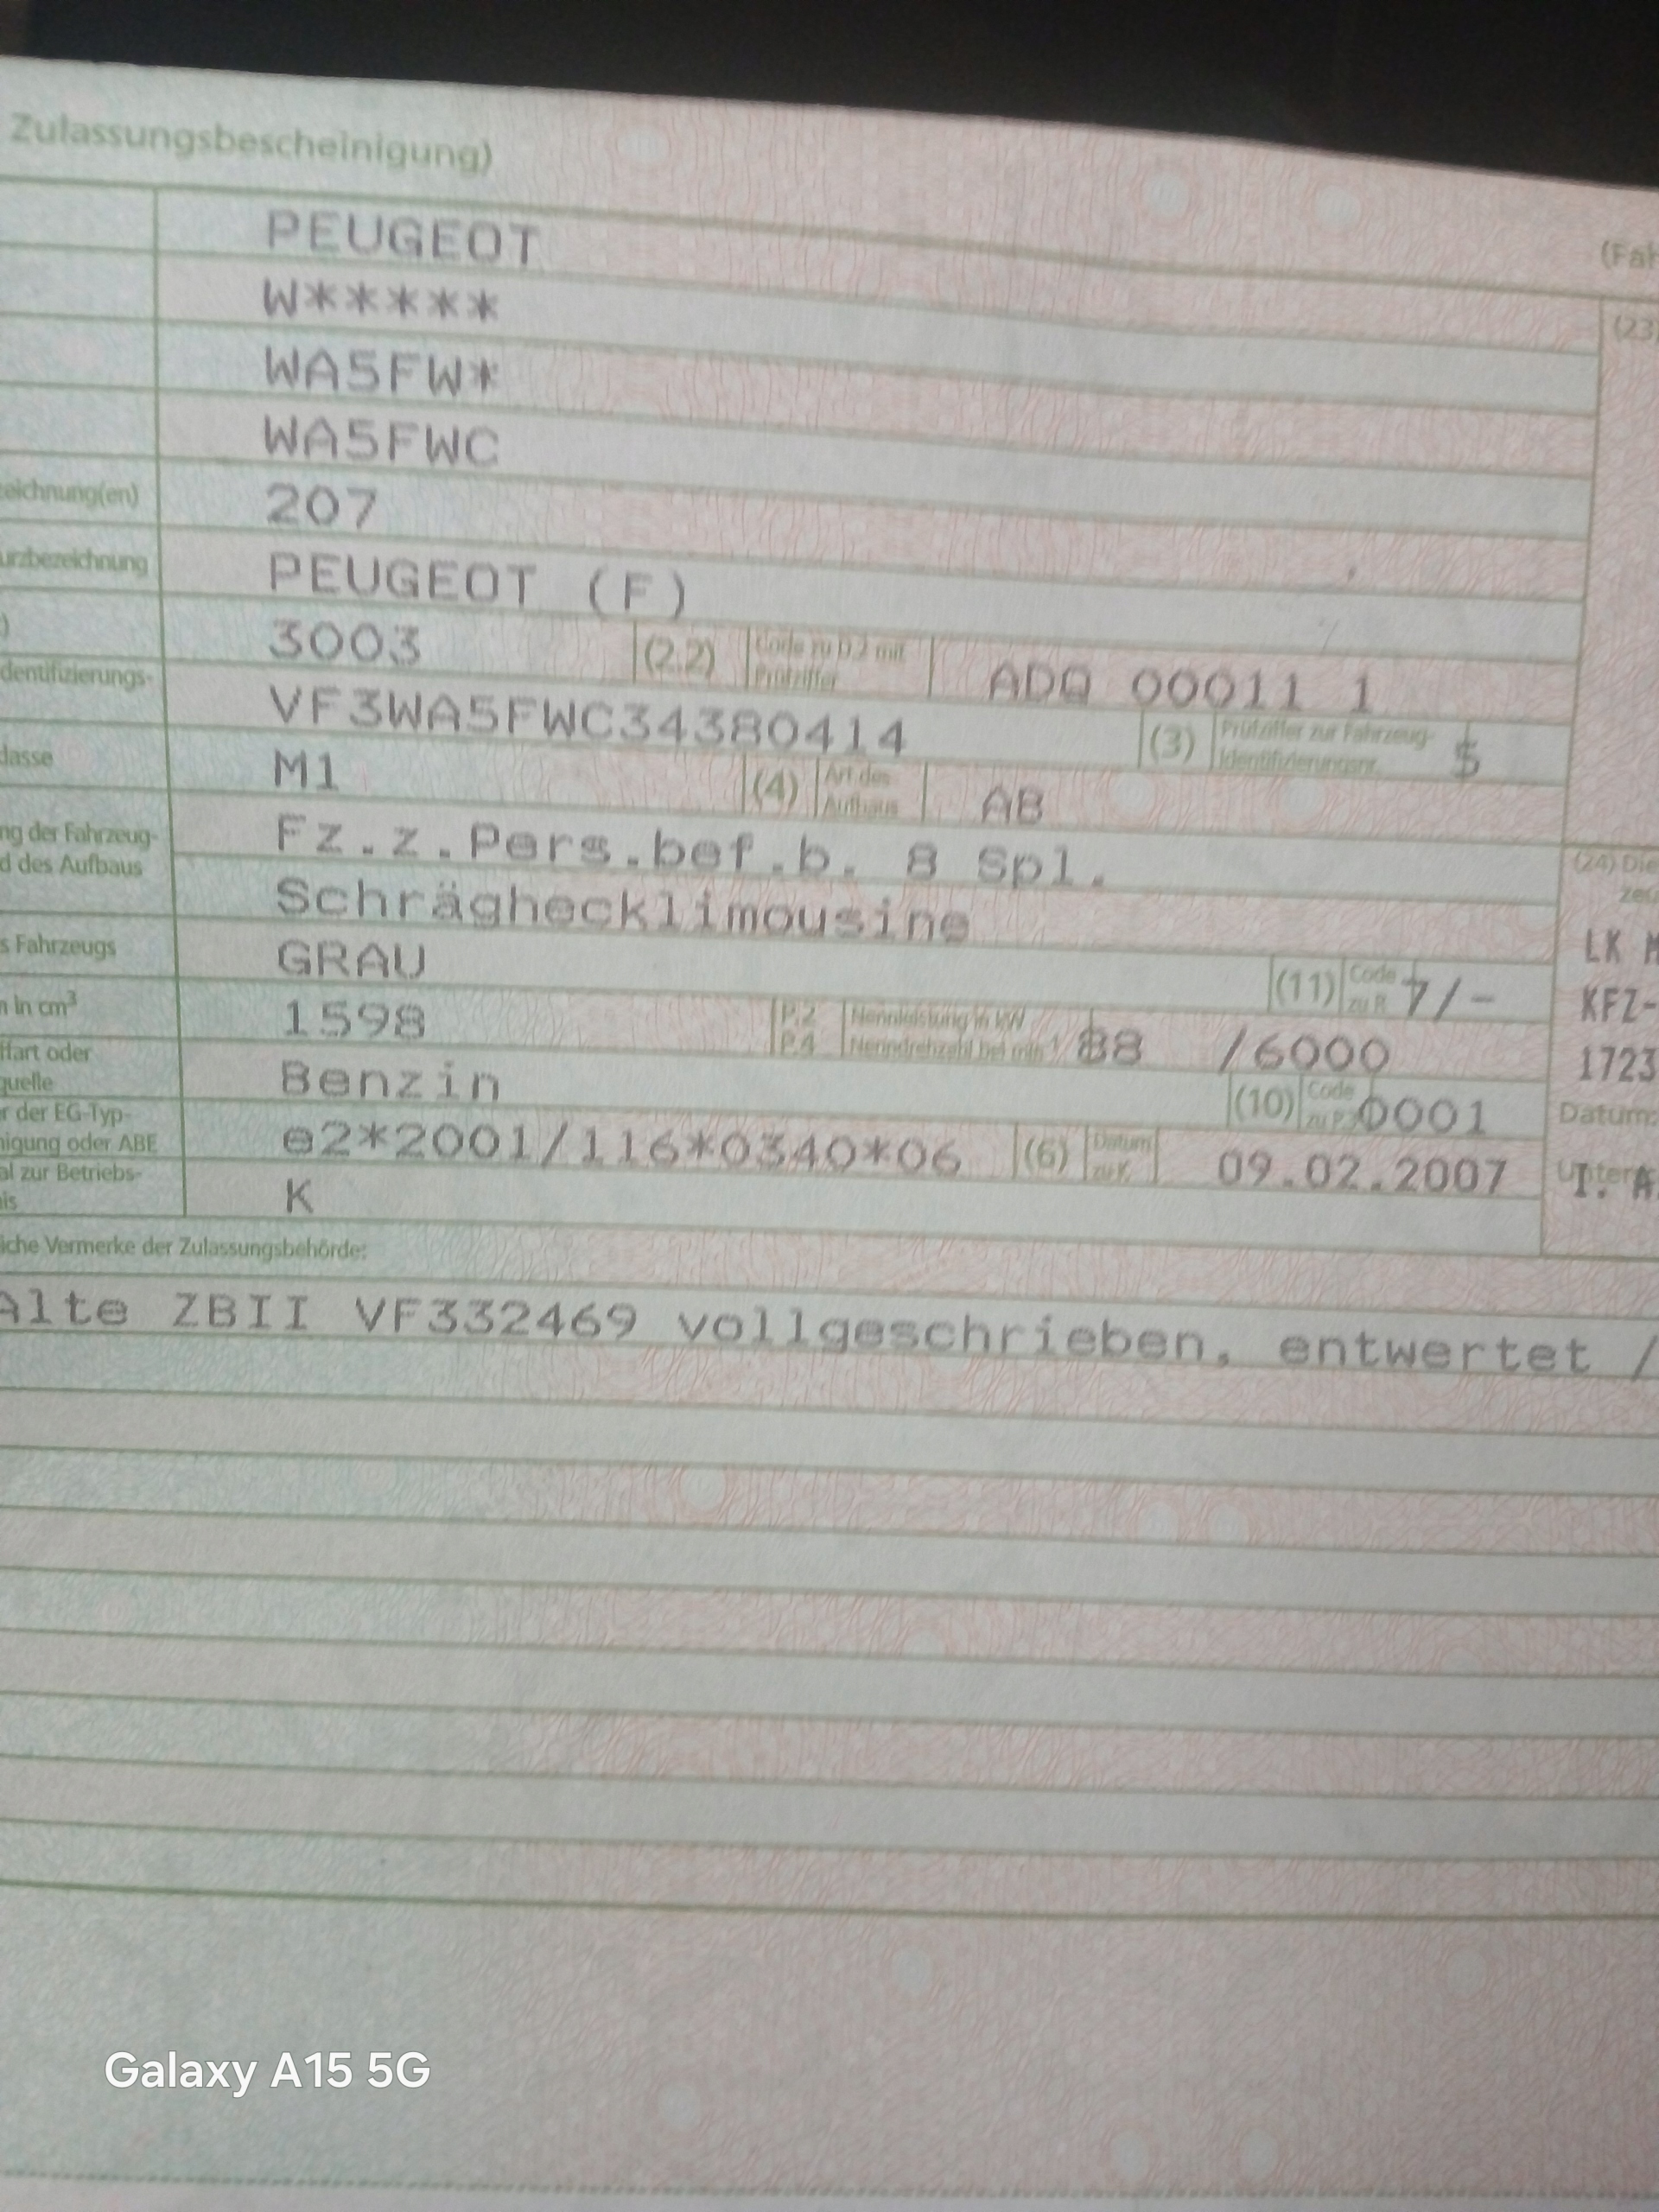 Zulassungsbescheinigung)
(Fah
PEUGEOT
(23)
W*****
WA5FW*
WA5FWC
zeichnung(en) 207
urzbezeichnung PEUGEOT (F)
) 3003 (2.2) Code zu D.2 mit Prüfziffer ADQ 00011 1
dentifizierungs- VF3WA5FWC34380414 (3) Prüfziffer zur Fahrzeug-Identifizierungsnr.
lasse M1 (4) Art des Aufbaus AB
ng der Fahrzeug- Fz.z.Pers.bef.b. 8 Spl.
d des Aufbaus Schräghecklimousine
(24) Die
s Fahrzeugs GRAU (11) Code zu R 7/-
LK
n in cm³ 1598 P.2 P.4 Nennleistung in kW Nenndrehzahl bei min⁻¹ 88 /6000
KFZ-
ffart oder quelle Benzin (10) Code zu P.3 0001
1723
r der EG-Typ- nigung oder ABE e2*2001/116*0340*06 (6) Datum zu K 09.02.2007
Datum:
al zur Betriebs- is K
I. A.
iche Vermerke der Zulassungsbehörde:
Alte ZBII VF332469 vollgeschrieben, entwertet /
Galaxy A15 5G